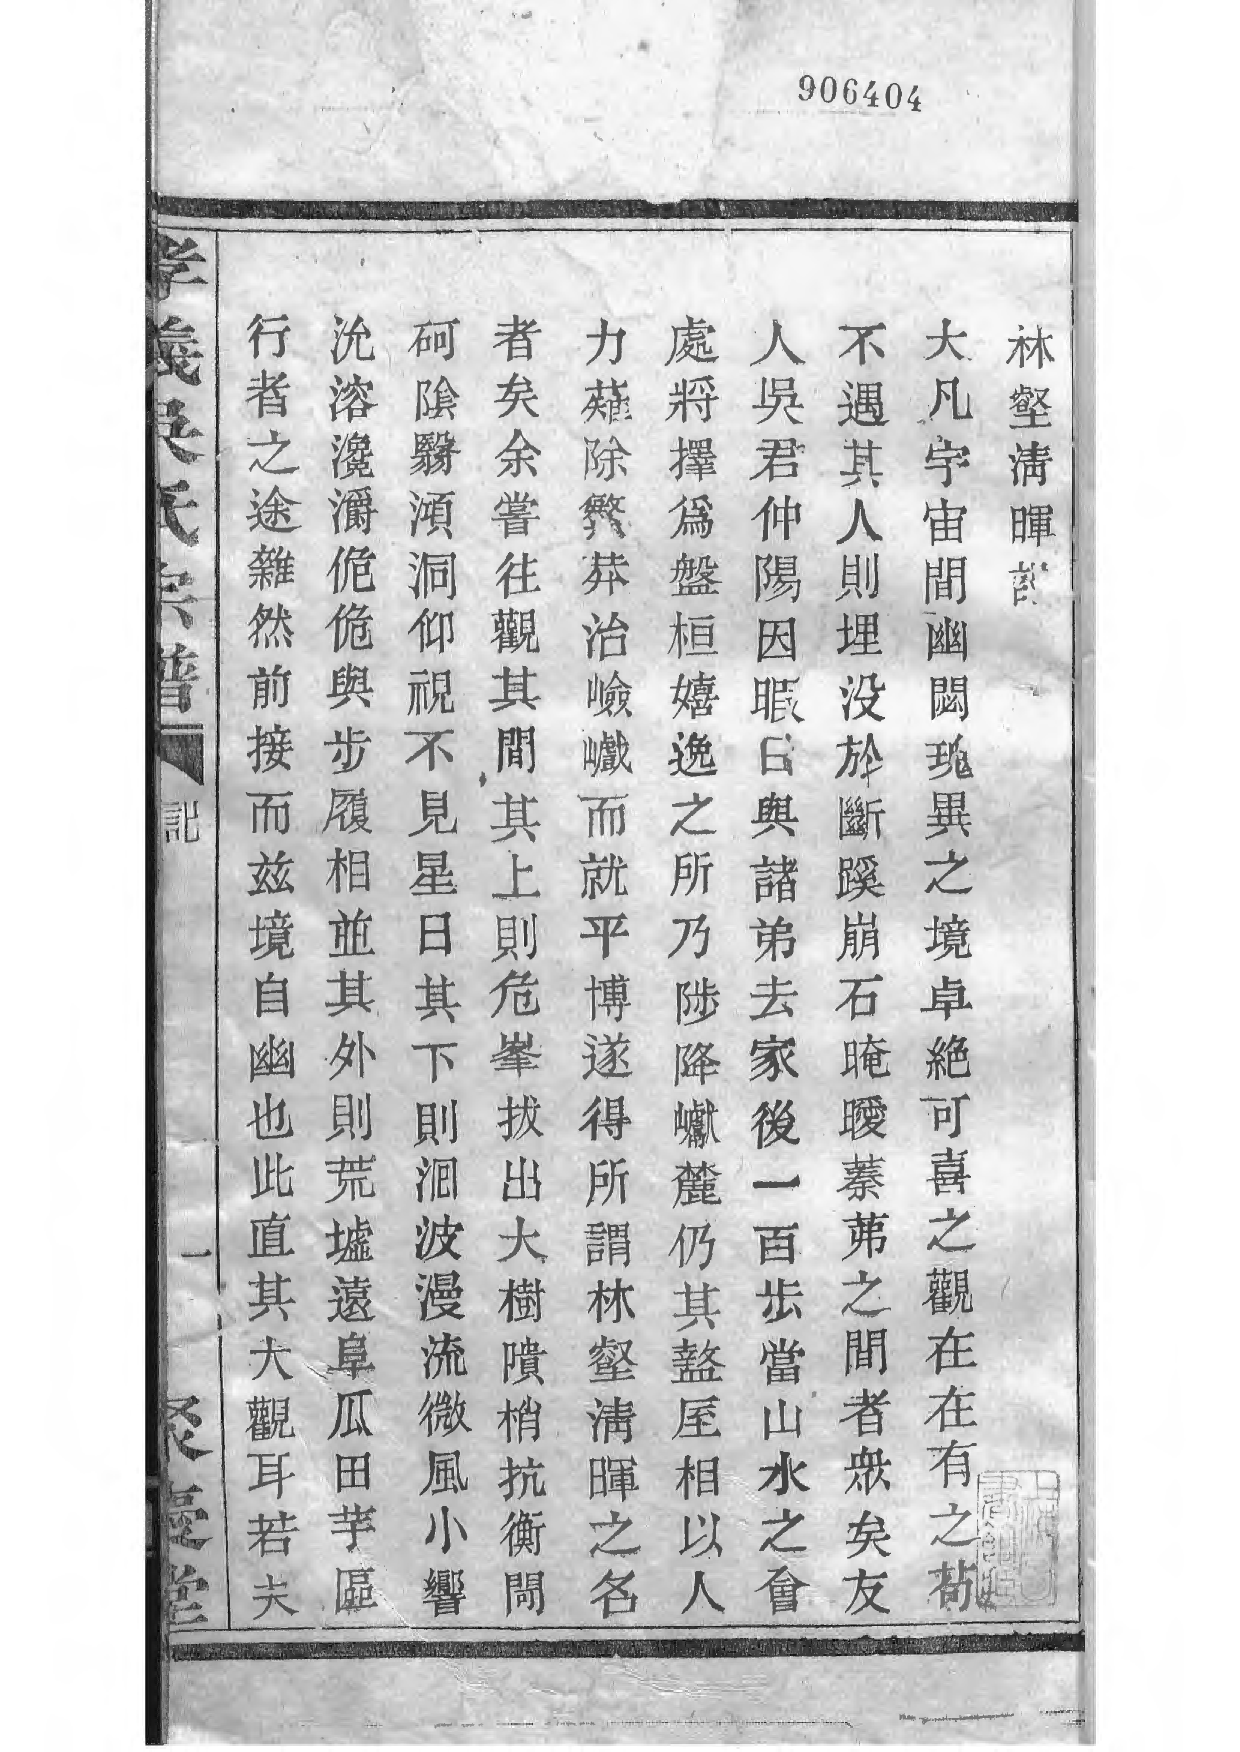 906404
林壑清暉記
大凡宇宙間幽閟瑰異之境卓絕可喜之觀在在有之茍
不遇其人則埋没於斷蹊崩石晻曖蓁茀之間者衆矣友
人吳君仲陽因暇日與諸弟去家後一百步當山水之會
處將擇爲盤桓嬉逸之所乃陟降巘麓仍其盩厔相以人
力薙除繁莽治崄巇而就平博遂得所謂林壑清暉之名
者矣余嘗往觀其間其上則危峯拔出大樹隤梢抗衡閜
砢陰翳澒洞仰視不見星日其下則洄波漫流微風小響
沇溶瀺灂佹佹與步履相並其外則荒墟遠阜瓜田芋區
行者之途雜然前接而兹境自幽也此直其大觀耳若夫
孝義吳氏宗譜
記
一
聚慶堂